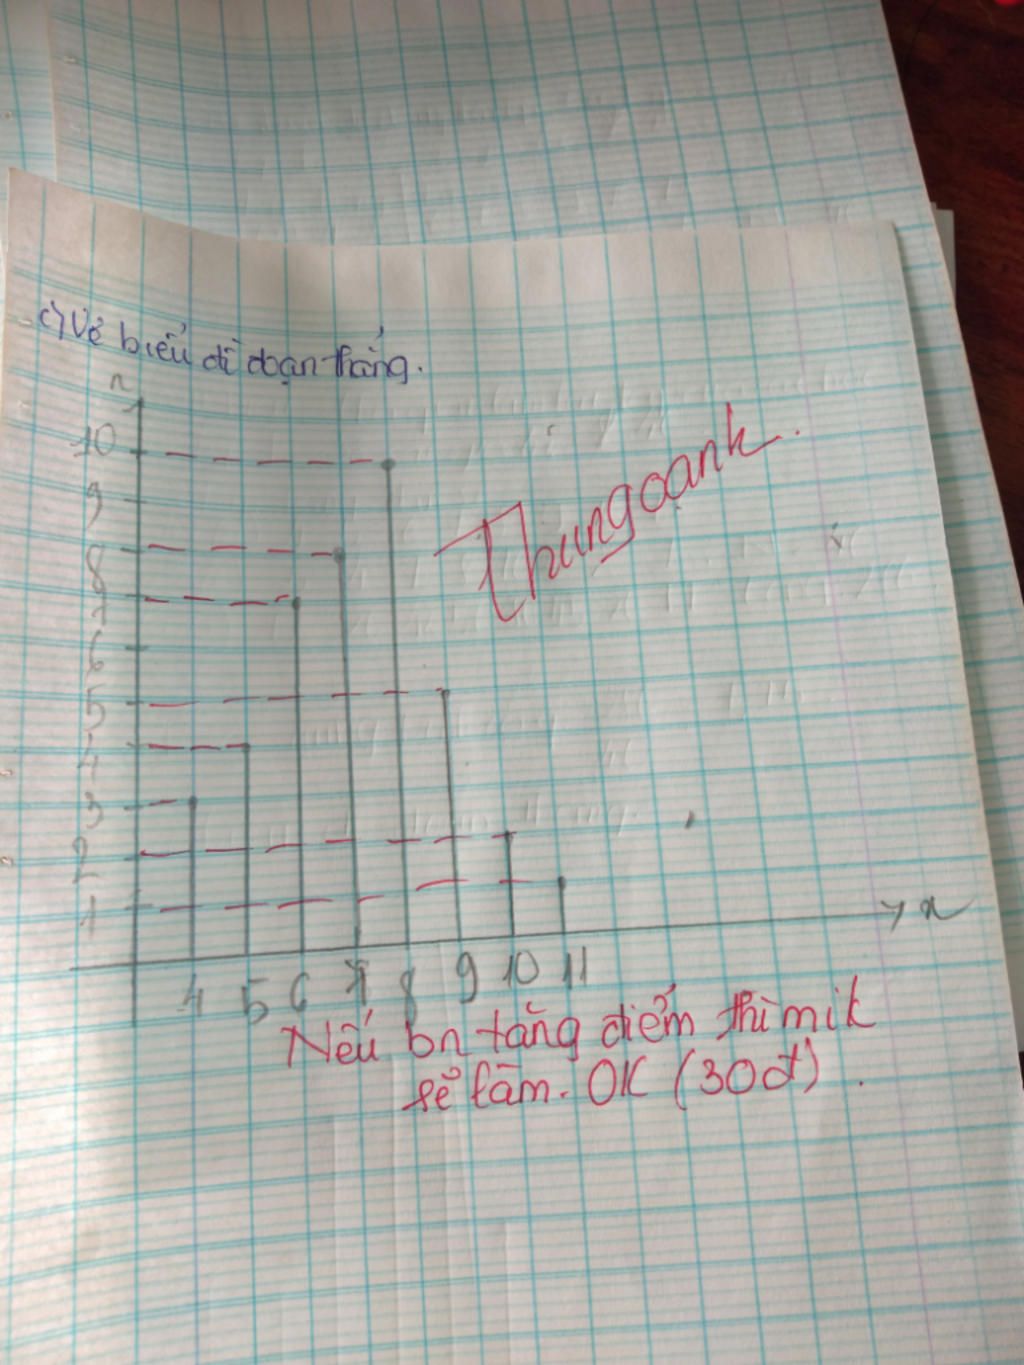 c) Vẽ biểu đồ đoạn thẳng.
n
10
9
8
7
6
5
4
3
2
1
x
4 5 6 7 8 9 10 11
Thungoanh.
Nếu bn tăng điểm thì mik
sẽ làm. OK (30đ).